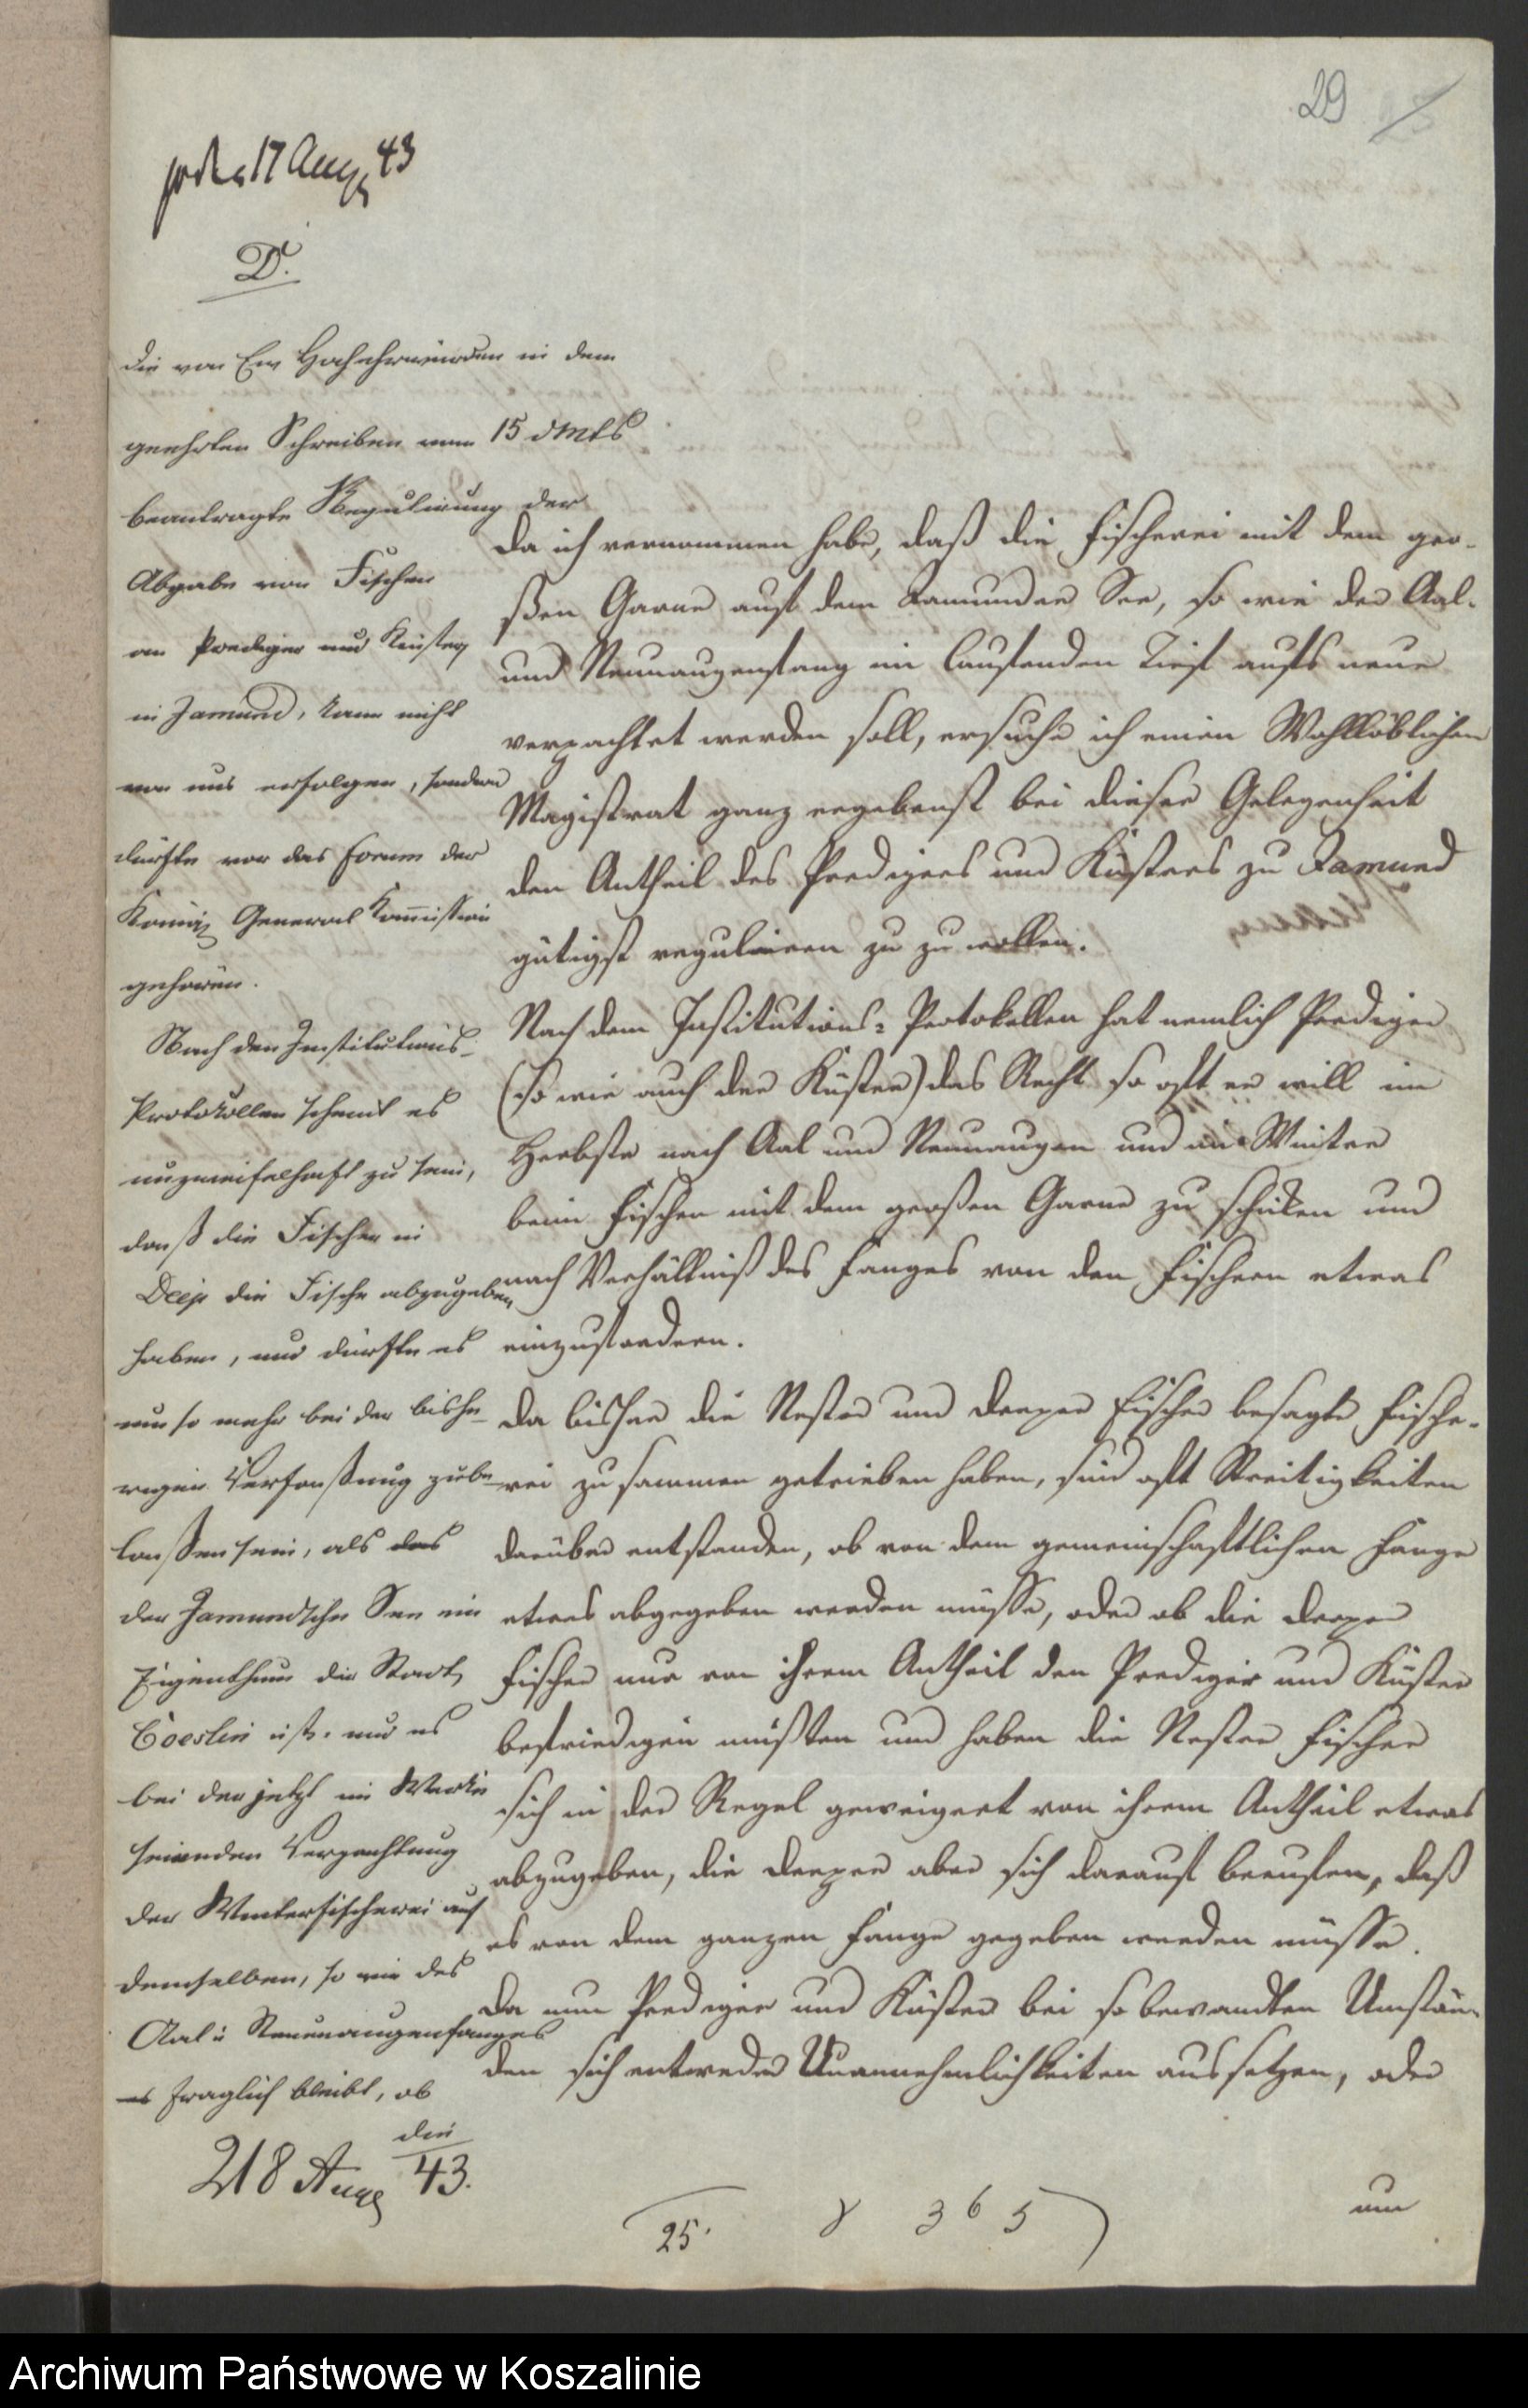 29
17 Aug 43
D.
Die von Ew Hochehrwürden in dem
geehrten Schreiben vom 15 d Mts
beantragte Regulirung der
Abgabe von Fischen
an Prediger und Küster
in Jamund, kann nicht
von uns erfolgen, sondern
dürfte vor das Forum der
Königl General Kommission
gehören.
Nach den Institutions-
Protokollen scheint es
unzweifelhaft zu sein,
daß die Fischer in
Deep die Fische abzugeben
haben, und dürfte es
um so mehr bei der bishe-
rigen Verfaßung zu be-
laßen sein, als das
der Jamundsche See ein
Eigenthum der Stadt
Coeslin ist. und es
bei der jetzt im Werke
seienden Verpachtung
der Winterfischerei auf
demselben, so wie des
Aal u Neunaugenfanges
es fraglich bleibt, ob
die
218 Aug 43.
Da ich vernommen habe, daß die Fischerei mit dem gro-
ßen Garne auf dem Jamunder See, so wie der Aal-
und Neunaugenfang im laufenden Tief aufs neue
verpachtet werden soll, ersuche ich einen Wohllöblichen
Magistrat ganz ergebenst bei dieser Gelegenheit
den Antheil des Predigers und Küsters zu Jamund
gütigst reguliren zu zu wollen.
Nach dem Institutions-Protokollen hat nemlich Prediger
(so wie auch der Küster) das Recht so oft er will im
Herbste nach Aal und Neunaugen und im Winter
beim Fischen mit dem großen Garne zu schicken und
nach Verhältniß des Fanges von den Fischern etwas
einzufordern.
Da bisher die Nester und Deeper Fischer besagte Fische-
rei zusammen getrieben haben, sind oft Streitigkeiten
darüber entstanden, ob von dem gemeinschaftlichen Fange
etwas abgegeben werden müsse, oder ob die Deeper
Fischer nur von ihrem Antheil den Prediger und Küster
befriedigen müßten und haben die Nester Fischer
sich in der Regel geweigert von ihrem Antheil etwas
abzugeben, die Deeper aber sich darauf berufen, daß
es von dem ganzen Fange gegeben werden müsse.
Da nun Prediger und Küster bei so bewandten Umstän-
den sich entweder Unannehmlichkeiten aussetzen, oder
um
25.
365
Archiwum Państwowe w Koszalinie